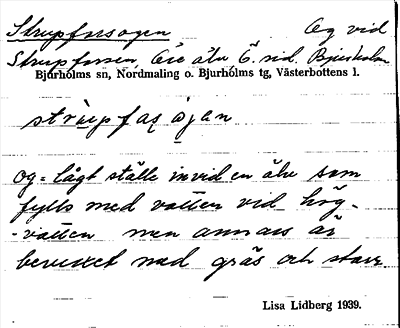 Strupforsogen Og vid
Strupforsen, Öre älv Ö. sid. Bjurholm
Bjurholms sn, Nordmaling o. Bjurholms tg, Västerbottens l.
og = lågt ställe invid en älv som
fylls med vatten vid hög-
-vatten men annars är
bevuxet med gräs och starr
Lisa Lidberg 1939.